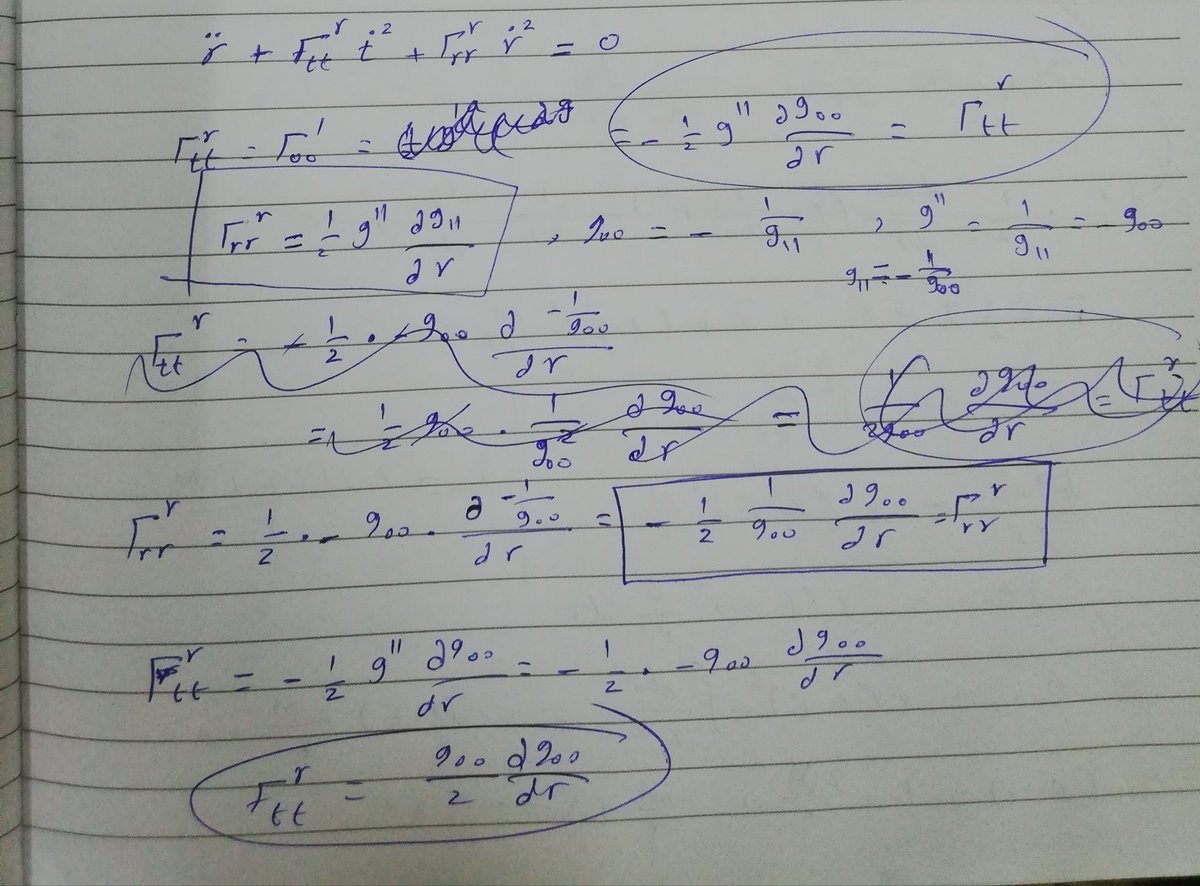 r̈ + Γ^r_tt ṫ² + Γ^r_rr ṙ² = 0
Γ^r_tt = Γ^1_00 = = - 1/2 g^11 ∂g_00/∂r = Γ^r_tt
Γ^r_rr = 1/2 g^11 ∂g_11/∂r , g_00 = - 1/g_11 , g^11 = 1/g_11 = - g_00
g_11 = - 1/g_00
Γ^r_tt = - 1/2 · - g_00 ∂ -1/g_00 / ∂r
= 1/2 g_00 · 1/g_00² ∂g_00/∂r = 1/2g_00 ∂g_00/∂r = Γ^r_tt
Γ^r_rr = 1/2 · - g_00 · ∂ -1/g_00 / ∂r = - 1/2 1/g_00 ∂g_00/∂r = Γ^r_rr
Γ^r_tt = - 1/2 g^11 ∂g_00/∂r = - 1/2 · - g_00 ∂g_00/∂r
Γ^r_tt = g_00/2 dg_00/dr